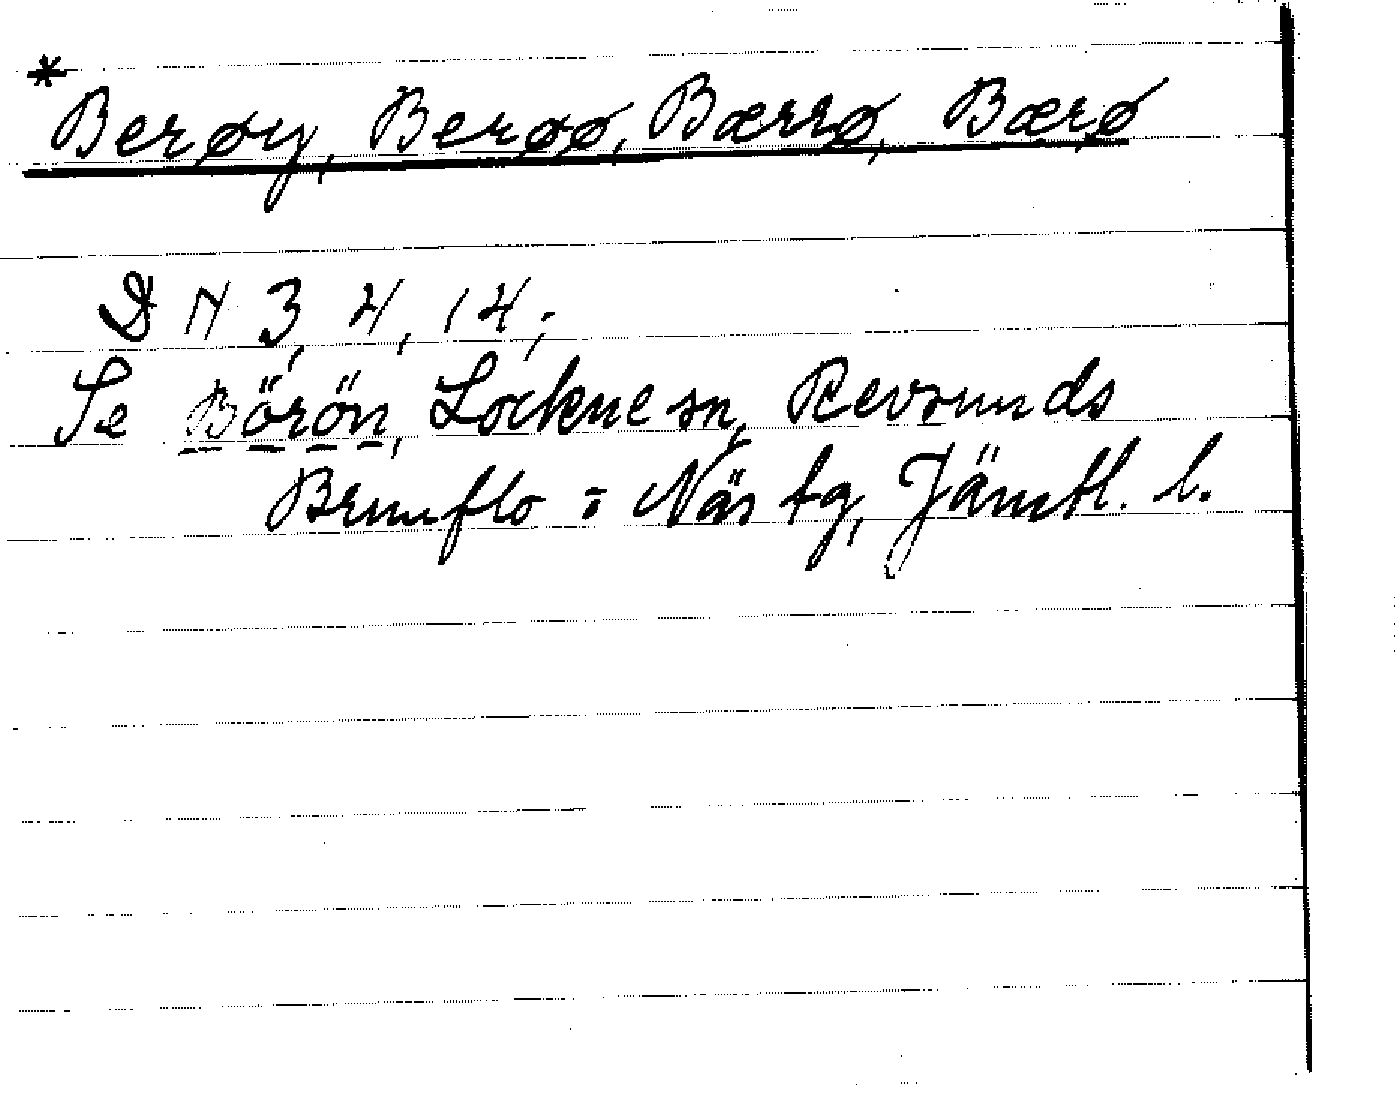 * Berøy, Berøø, Bærrø, Bærø
DN 3, 4, 14;
Se Börön, Lockne sn, Revsunds
Brunflo o Näs tg, Jämtl. l.